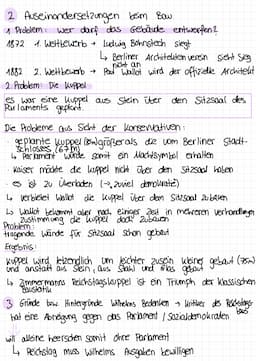 2 Auseinandersetzungen beim Bau
1. Problem: wer darf das Gebäude entwerfen?
1872 1. Wettbewerb → Ludwig Bohnstech siegt
↳ Berliner Architektenverein sieht Sieg
nicht an
1882 2. Wettbewerb → Paul Wallot wird der offizielle Architekt
2. Problem: Die Kuppel
es war eine Kuppel aus Stein über den Sitzsaal des
Parlaments geplant.
Die Probleme aus Sicht der Konservativen:
· geplante Kuppel größer als die vom Berliner Stadt-
schlosses (67m)
↳ Parlament würde somit ein Machtsymbol erhalten
· Kaiser möchte die Kuppel nicht über den Sitzsaal haben
· es ist zu überladen (→ zuviel demokratie)
↳ verbietet Wallot die Kuppel über dem Sitzsaal zubauen
↳ Wallot bekommt aber nach einiger Zeit in mehreren verhandlungen
zustimmung die Kuppel zubauen
Problem:
tragende Wände für Sitzsaal schon gebaut
Ergebnis:
Kuppel wird letzendlich um leichter zusein kleiner gebaut (75m)
und anstatt aus Stein, aus Stahl und Glas gebaut
↳ Zimmermanns Reichstagskuppel ist ein Triumph der klassischen
Baustatik
3 Gründe bzw Hintergründe Wilhelms Bedenken → Kritiker des Reichstags-
baus
hat eine Abneigung gegen das Parlament / Sozialdemokraten
will alleine herrschen somit ohne Parlament
↳ Reichstag muss Wilhelms Ausgaben bewilligen